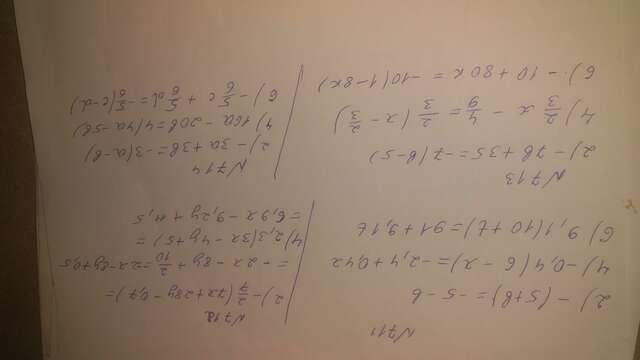 N711
2) -(5+b)=-5-b
4) -0,4(6-x)=-2,4+0,4x
6) 9,1(10+t)=91+9,1t
N712
2) -2/7(7x+28y-0,7)=
=-2x-8y+2/10=2x-8y+0,5
4) 2,3(3x-4y+5)=
=6,9x-9,2y+11,5
N713
2) -7b+35=-7(b-5)
4) 2/3x-4/9=2/3(x-2/3)
6) -10+80k=-10(1-8k)
N714
2) -3a+3b=-3(a-b)
4) 16a-20b=4(4a-5b)
6) -5/6c+5/6d=-5/6(c-d)